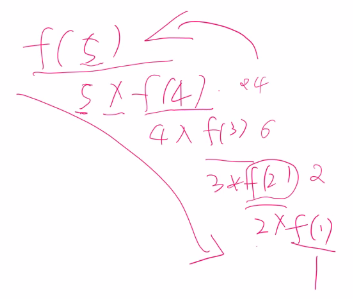 f(5)
5 × f(4) 24
4 × f(3) 6
3 * f(2) 2
2 × f(1)
1